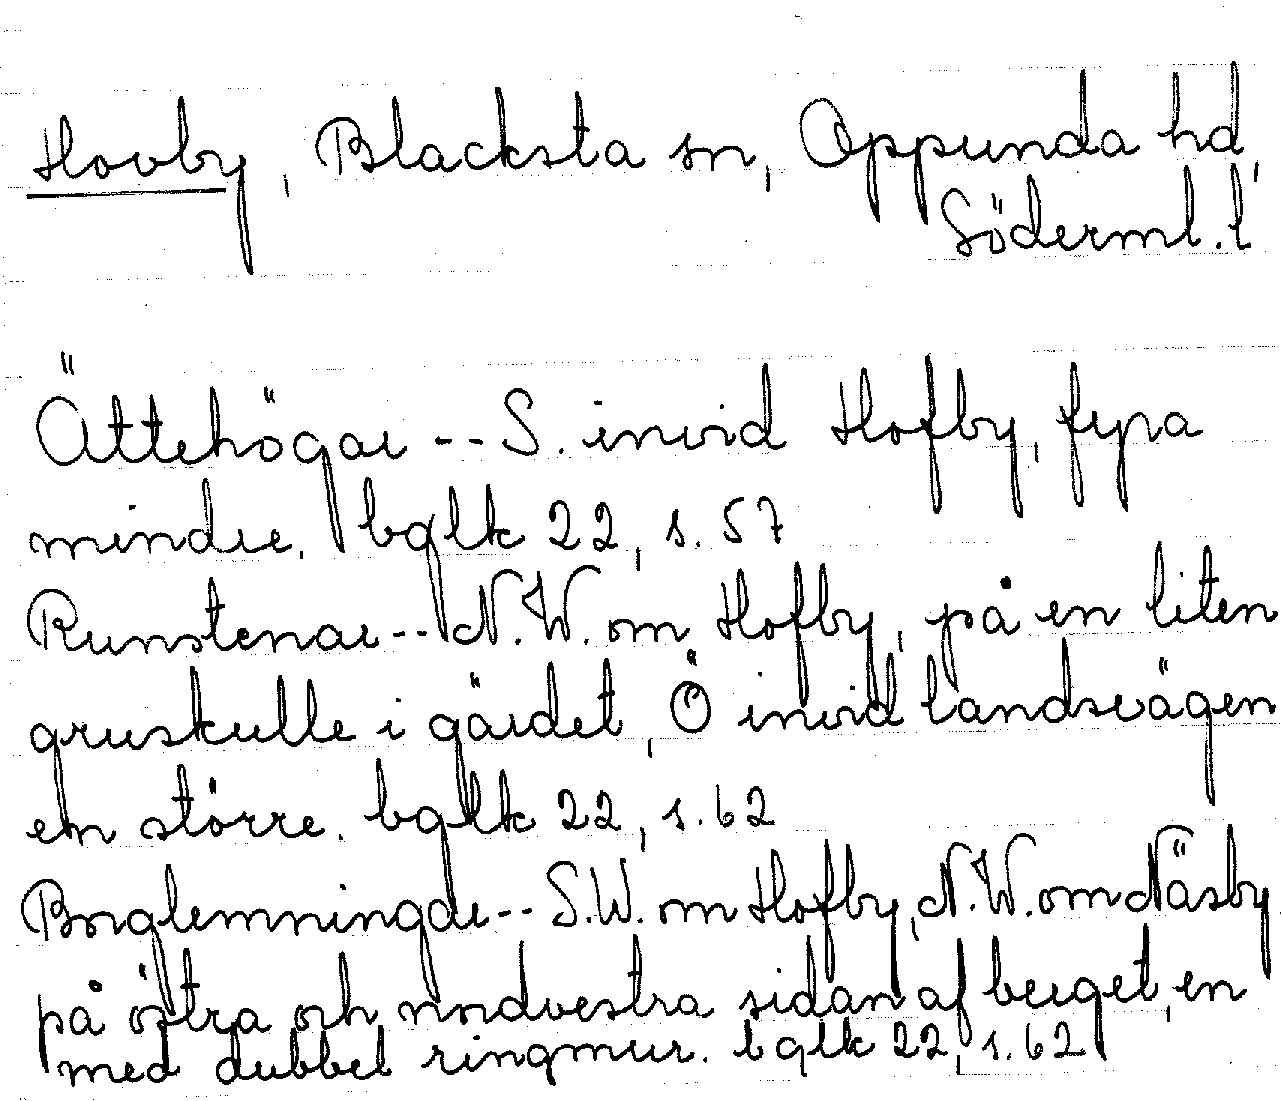 Hovby, Blacksta sn, Oppunda hd,
Söderml. l
Ättehögar -- S. invid Hofby, fyra
mindre. bglk 22, s. 57
Runstenar -- N.W. om Hofby, på en liten
gruskulle i gärdet, Ö invid landsvägen
en större. bglk 22, s. 62
Borglemningar -- S.W. om Hofby, N.W. om Näsby
på östra och nordvestra sidan af berget, en
med dubbel ringmur. bglk 22, s. 62